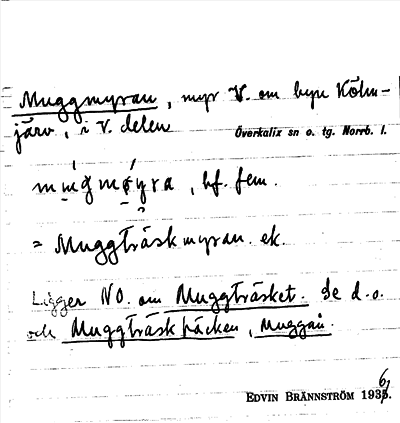 Muggmyran, myr V. om byn Kölm-
järv, i V. delen
Överkalix sn o. tg. Norrb. l.
, bf. fem.
= Muggträskmyran. ek.
Ligger NO. om Muggträsket. Se d.o.
och Muggträskbäcken, Muggån.
EDVIN BRÄNNSTRÖM 1936.